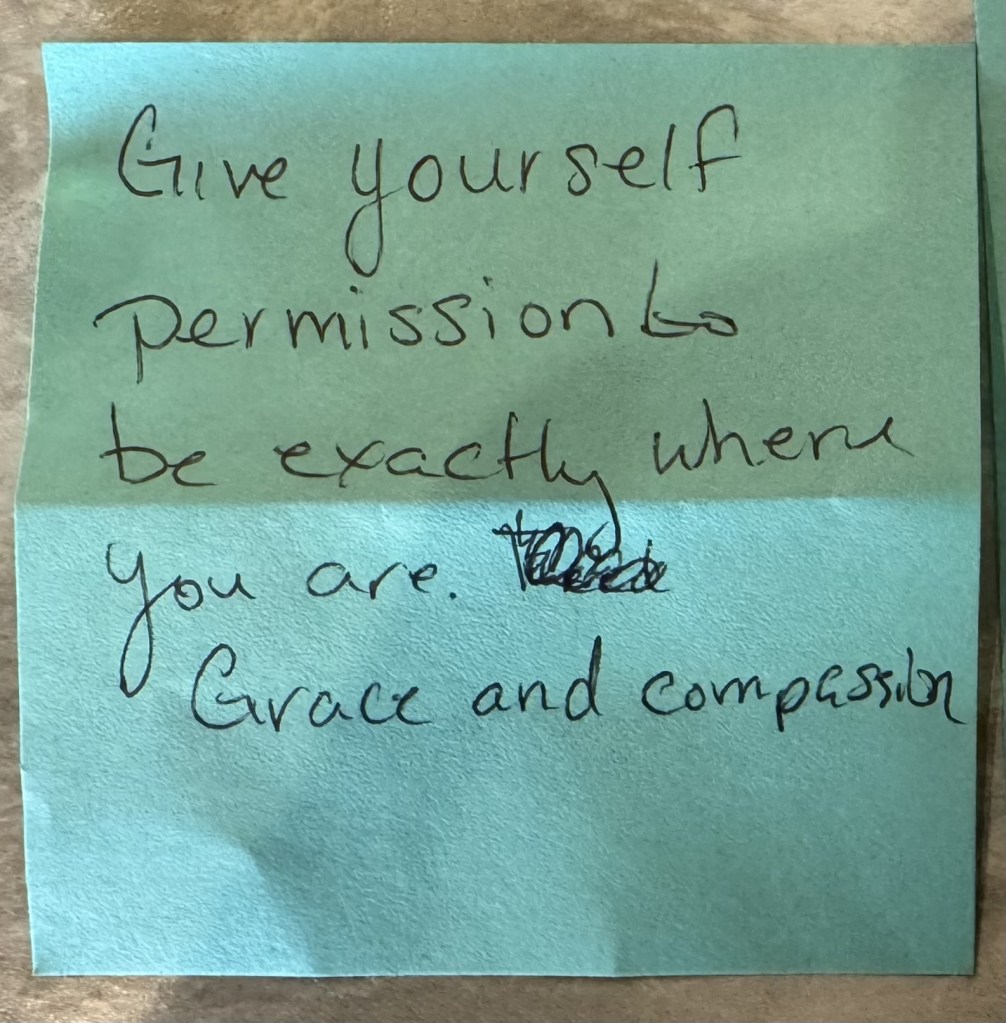 Give yourself
permission to
be exactly where
you are.
Grace and compassion